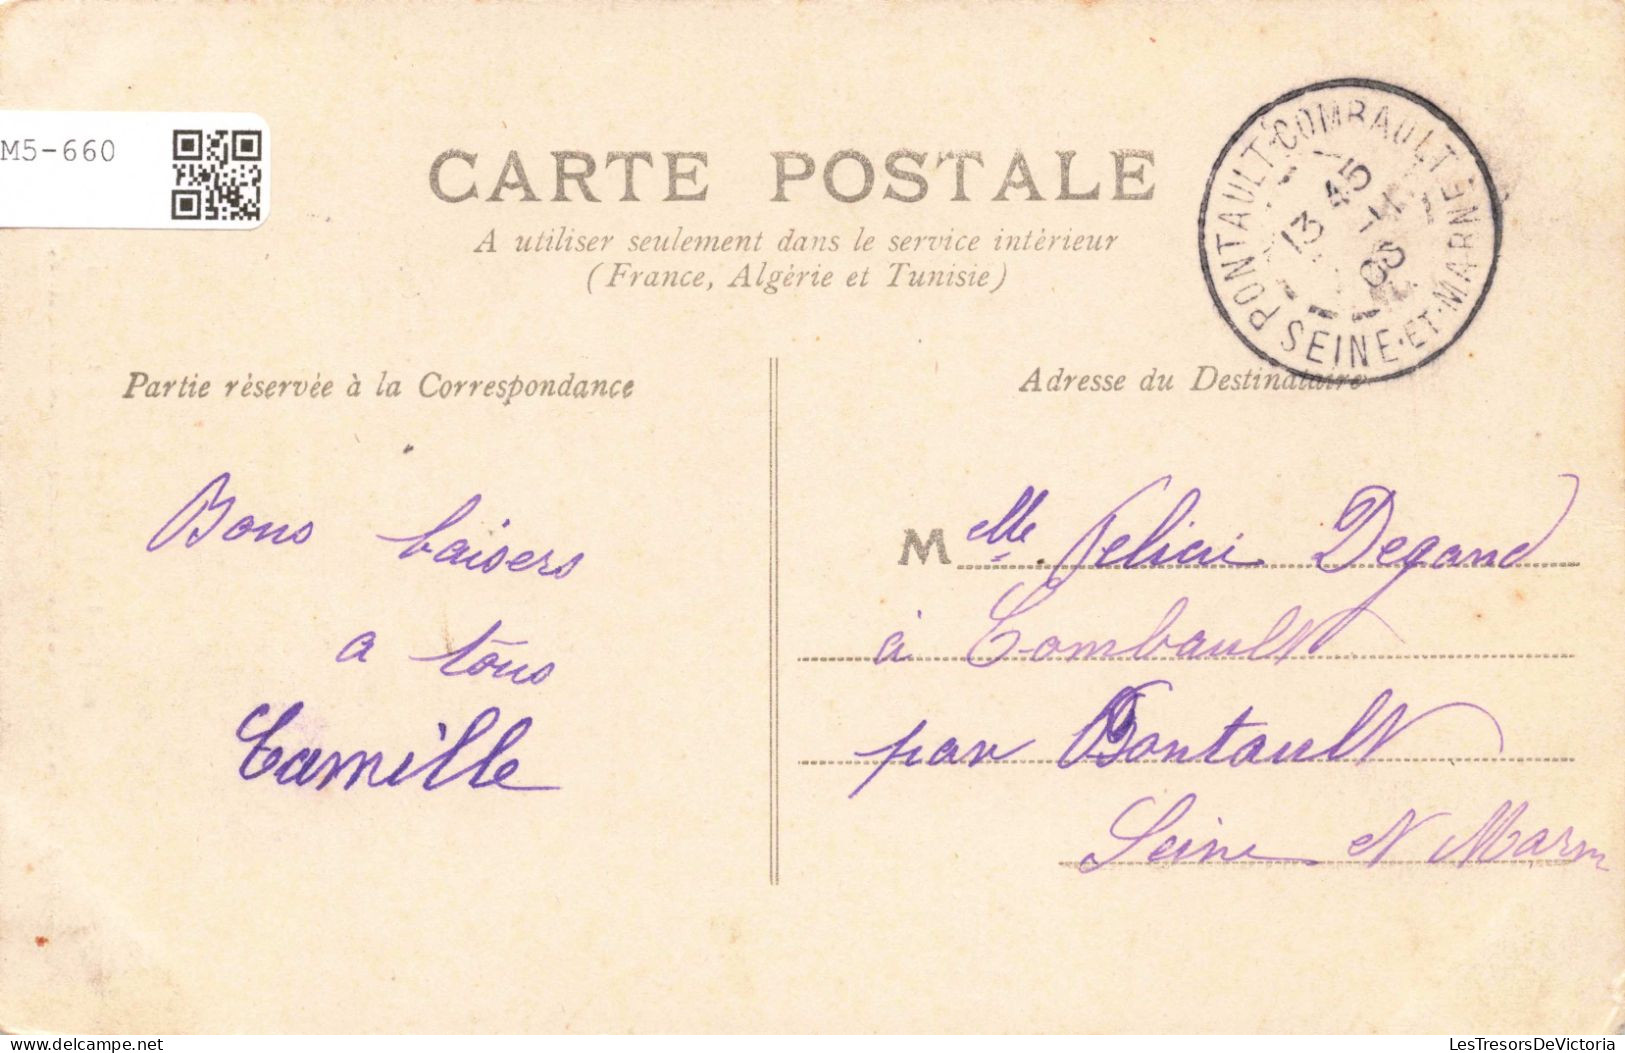 M5-660
CARTE POSTALE
A utiliser seulement dans le service intérieur
(France, Algérie et Tunisie)
PONTAULT-COMBAULT
SEINE-ET-MARNE
13 45
Partie réservée à la Correspondance
Adresse du Destinataire
Bons baisers
a tous
Camille
Melle Felicie Degand
à Combault
par Pontault
Seine et Marne
delcampe.net
LesTresorsDeVictoria